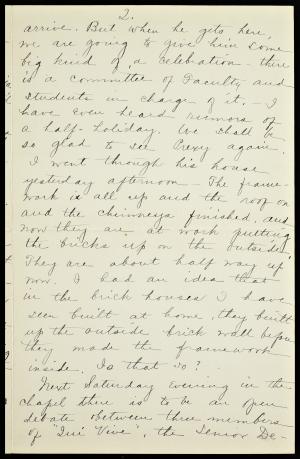 2.
arrive. But when he gets here,
we are going to give him some
big kind of a celebration - there
is a committee of Faculty and
students in charge of it. - I
have even heard rumors of
a half-holiday. We shall be
so glad to see Prexy again.
I went through his house
yesterday afternoon - The frame-
work is all up and the roof on
and the chimneys finished, and
now they are at work putting
the bricks up on the outside.
They are about half way up
now. I had an idea that
in the brick houses I have
seen built at home, they built
up the outside brick wall before
they made the framework
inside. Is that so?
Next Saturday evening in the
chapel there is to be an open
debate between three members
of "Qui Vive", the Senior De-